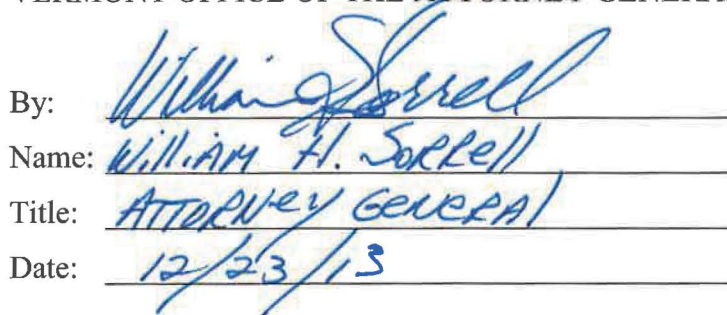 VERMONT OFFICE OF THE ATTORNEY GENERAL
By: William H Sorrell
Name: William H. Sorrell
Title: Attorney General
Date: 12/23/13